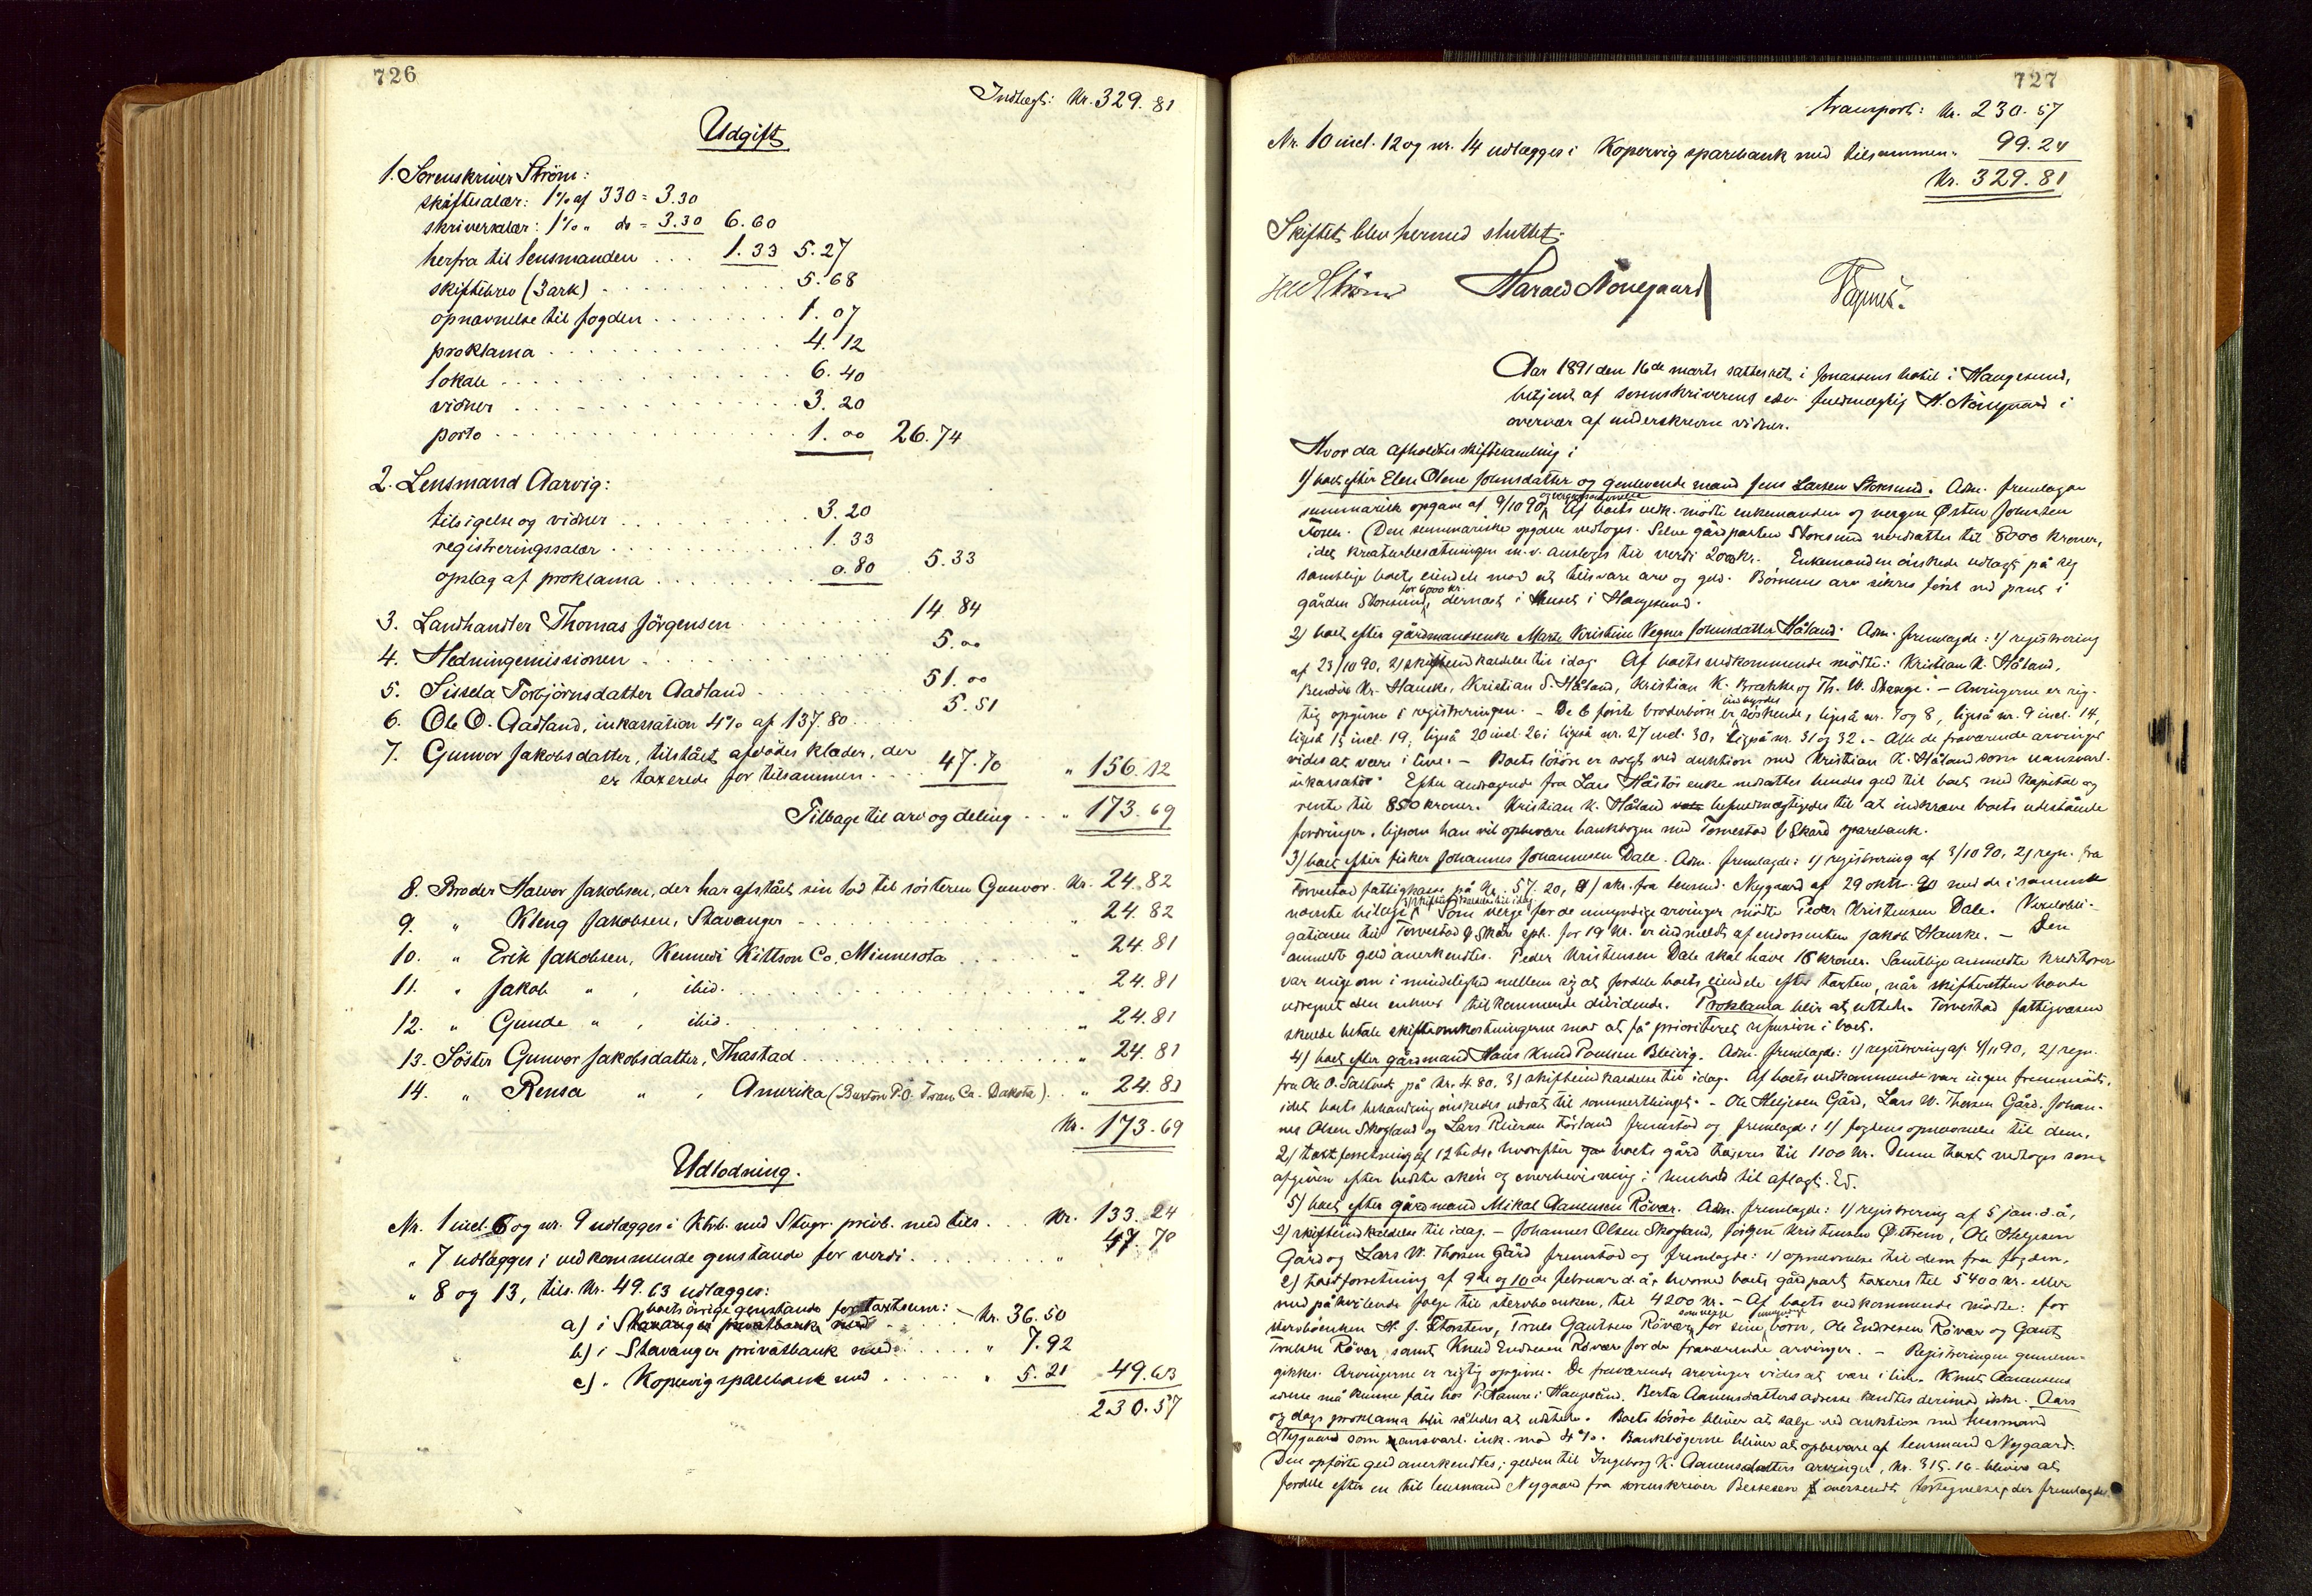 726
Indtægt: Kr. 329.81
Udgift
1. Sorenskriver Strøm:
skiftesalær: 1% af 330 = 3.30
skriversalær: 1% " do = 3.30 6.60
herfra til lensmanden . . . 1.33 5.27
skiftebrev (3 ark) . . . 5.68
opnævnelse til fogden . . . 1.07
proklama . . . 4.12
lokale . . . 6.40
vidner . . . 3.20
porto . . . 1.00 26.74
2. Lensmand Aarvig:
tilsigelse og vidner . . . 3.20
registreringssalær . . . 1.33
opslag af proklama . . . 0.80 5.33
3. Landhandler Thomas Jörgensen . . . 14 84
4. Hedningemissionen . . . 5.00
5. Sissela Torbjörnsdatter Aadland . . . 51.00
6. Ole O. Aadland, inkassation 4% af 137.80 . . . 5.51
7. Gunvor Jakobsdatter, tilstået afdödes klæder, der
er taxerede for tilsammen . . . 47.70 " 156.12
Tilbage til arv og deling . . . " 173.69
8. Broder Halvor Jakobsen, der har afstået sin lod til sösteren Gunvor. Kr. 24.82
9. " Kleng Jakobsen, Stavanger . . . " 24.82
10. " Erik Jakobsen, Kennedi Kittson Co, Minnesota . . . " 24.81
11. " Jakob " , ibid. . . . " 24.81
12. " Gunde " , ibid. . . . " 24.81
13. Söster Gunvor Jakobsdatter, Thastad . . . " 24.81
14. " Rensa " , Amerika (Buxton P.O. Traill Co. Dakota) . . " 24.81
Kr. 173.69
Udlodning.
Nr. 1 incl. 6 og nr. 9 udlægges i Ktrb. med Stvgr. privb. med tils. . . Kr. 133.24
" 7 udlægges i vedkommende genstande for verdi . . . " 47.70
" 8 og 13, tils. Kr. 49.63 udlægges:
a) i boets övrige genstande for taxtsum: - Kr. 36.50
b) i Stavanger privatbank med . . . " 7.92
c) " Kopervig sparebank med . . . " 5.21 49.63
230.57
727
transport: Kr. 230.57
Nr. 10 incl. 12 og nr. 14 udlægges i Kopervig sparebank med tilsammen " 99.24
Kr. 329.81
Skiftet blev hermed sluttet.
Strøm Harald Nörregaard
Aar 1891 den 16de marts sattes ret i Jonassens hotel i Haugesund,
betjent af sorenskriverens edsv. fuldmægtig H. Nörregaard i
overvær af underskrevne vidner.
Hvor da afholdtes skiftesamling i
1) boet efter Elen Olene Johnsdatter og genlevende mand Jens Larsen Storesund. Adm. fremlagde
summarisk opgave af 9/10 90 og vergeopnævnelse. Af boets vedk. mödte enkemanden og vergen Østen Johnsen
. (Den summariske opgave vedtoges. Selve gårdparten Storesund verdsattes til 8000 kroner,
idet kreaturbesætningen m.v. ansloges til verdi 2000 kr. Enkemanden önskede udlagt på sig
samtlige boets eiendele mod at tilsvare arv og geld. Börnenes arv sikres först ved pant i
gården Storesund for 6000 kr., dernæst i huset i Haugesund.
2) boet efter gårdmandsenke Marte Kristine Vegner Johnsdatter Håland. Adm. fremlagde: 1) registrering
af 23/10 90, 2) skifteindkaldelse til idag. Af boets vedkommende mödte: Kristian K. Håland,
Bendix Kr. Hauske, Kristian S. Håland, Kristian K. Brække og Th. W. Stange. - Arvingerne er rig-
tig opgivne i registreringen. - De 6 förste broderbörn er indbyrdes söskende, ligeså nr. 7 og 8, ligeså nr. 9 incl. 14,
ligeså 15 incl. 19, ligeså 20 incl. 26, ligeså nr. 27 incl. 30, ligeså nr. 31 og 32. - Alle de fraværende arvinger
vides at være i live. - Boets lösöre er solgt ved auktion med Kristian K. Håland som uansvarl.
inkassator. Efter andragende fra Lars Håstös enke nedsattes hendes geld til boet med kapital og
rente til 850 kroner. Kristian K. Håland befuldmægtiges til at indkræve boets udestående
fordringer, ligesom han vil opbevare bankbogen med Torvestad & Skaré sparebank.
3) boet efter fisker Johannes Johannesen Dale. Adm. fremlagde: 1) registrering af 3/10 90, 2) regn. fra
Torvestad fattigkasse på Kr. 57.20, 3) skr. fra lensmd. Nygaard af 29 oktr. 90 med de i samme
nævnte bilage, skifteindkaldelse til idag. Som verge for de umyndige arvinger mödte Peder Kristensen Dale. Vexelobli-
gationen til Torvestad & Skåre spb. for 19 Kr. er indmeldt af endossenten Jakob Hauske. - Den
anmeldte geld anerkendtes. Peder Kristensen Dale skal have 16 kroner. Samtlige anmeldte kreditorer
var enige om i mindelighed mellem sig at fordele boets eiendele efter taxten, når skifteretten havde
udregnet den enhver tilkommende dividende. Proklama blir at utstede. Torvestad fattigvæsen
skulde betale skifteomkostningerne mod at få prioriteret refusion i boet.
4) boet efter gårdmand Hans Knud Poulsen Bleivig. Adm. fremlagde: 1) registrering af 4/11 90, 2) regn.
fra Ole O. på Kr. 4.80, 3) skifteindkaldelse til idag. Af boets vedkommende var ingen fremmödt,
idet boets behandling önskedes udsat til sommerthinget. - Ole Helgesen Gård, Lars W. Thorsen Gård, Johan-
nes Olsen Skogland og Lars Reiersen fremstod og fremlagde: 1) fogdens opnævnelse til dem,
2) taxtforretning af 12 ds, hvorefter boets gård taxeres til 1100 kr. Denne taxt vedtoges som
afgiven efter bedste skön og overbevisning i henhold til aflagt Ed.
5) boet efter gårdmand Mikal Aanensen Rövær. Adm. fremlagde: 1) registrering af 5 jan. d.å,
2) skifteindkaldelse til idag. - Johannes Olsen Skogland, Jörgen Kristensen Østrem, Ole Helgesen
Gård og Lars W. Thorsen Gård fremstod og fremlagde: 1) opnævnelse til dem fra fogden,
2) taxtforretning af 9de og 10de februar d.å, hvorved boets gårdpart taxeres til 5400 kr. eller
med påhvilende folge til stervboenken, til 4200 kr. - Af boets vedkommende mödte: for
stervboenken H. J. Storsten, Truls Gautsen Rövær som verge for sine umyndige börn, Ole Endresen Rövær og Gaut
Trulsen Rövær, samt Knud Endresen Rövær for de fraværende arvinger. - Registreringen gennem-
gikkes. Arvingerne er rigtig opgivne. De fraværende arvinger vides at være i live. Knut Aanensens
adresse må kunne fåes hos P. Hamre i Haugesund. Berta Aanensdatters adresse kendtes derimod ikke. Aars
og dags proklama blir således at udstede. Boets lösöre bliver at sælge ved auktion med lensmand
Nygaard som uansvarl. ink. mod 4%. Bankbögerne bliver at opbevare af lensmand Nygaard.
Den opförte geld anerkendtes; gelden til Ingeborg K. Aanensdatters arvinger, Kr. 315.16 bliver at
fordele efter en til lensmand Nygaard fra sorenskriver Bessesen oversendt fortegnelse, der fremlagdes